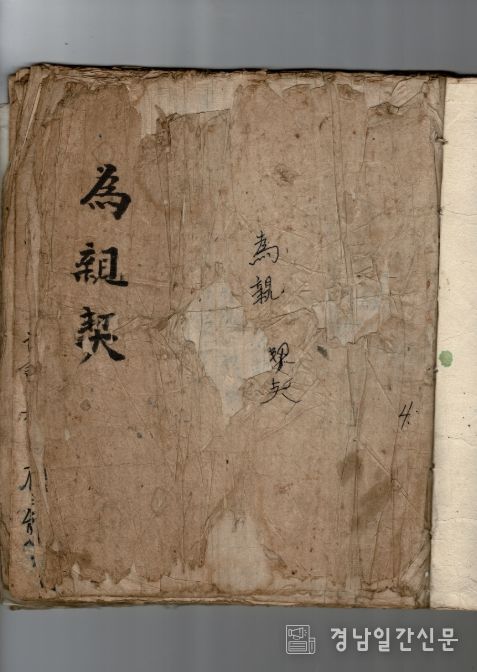 為親契
為親 契
4.
경남일간신문